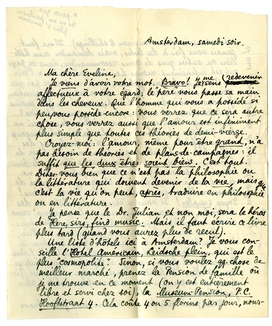 Amsterdam, samedi soir.
Ma chère Eveline,
Je viens d'avoir votre mot. Bravo! je me sens redevenir
affectueux à votre égard; le père vous passe sa main
dans les cheveux. Que l'homme qui vous a possédé si
peu vous possède encore: vous verrez que ce sera autre
chose, vous verrez aussi que l'amour est infiniment
plus simple que toutes ces théories de demi-vierge.
Croyez-moi: l'amour, même pour être grand, n'a
pas besoin de théories et de plans de campagnes: il
suffit que les deux êtres soient bien. C'est tout.
Dites-vous bien que ce n'est pas la philosophie ou
la littérature qui doivent devenir de la vie, mais
c'est la vie qu'on peut après, traduire en philosophie
ou en littérature.
Je pense que le Dr. Julian, et non moi, sera le héros
de Here, sirs, find music! mais il faut écrire ce livre
plus tard (quand vous aurez plus de recul).
Une liste d'hôtels ici à Amsterdam? Je vous con-
seille l'Hotel Américain, Leidsche plein, qui est le
plus cosmopolite. Sinon, si vous voulez qq chose de
meilleur marché, prenez la Pension de famille où
je me trouve en ce moment (on y est entièrement
libre et servi chez soi), la Museum-Pension, P.C.
Hooftstraat 4. Cela coûte 4 ou 5 florins par jour, nour-